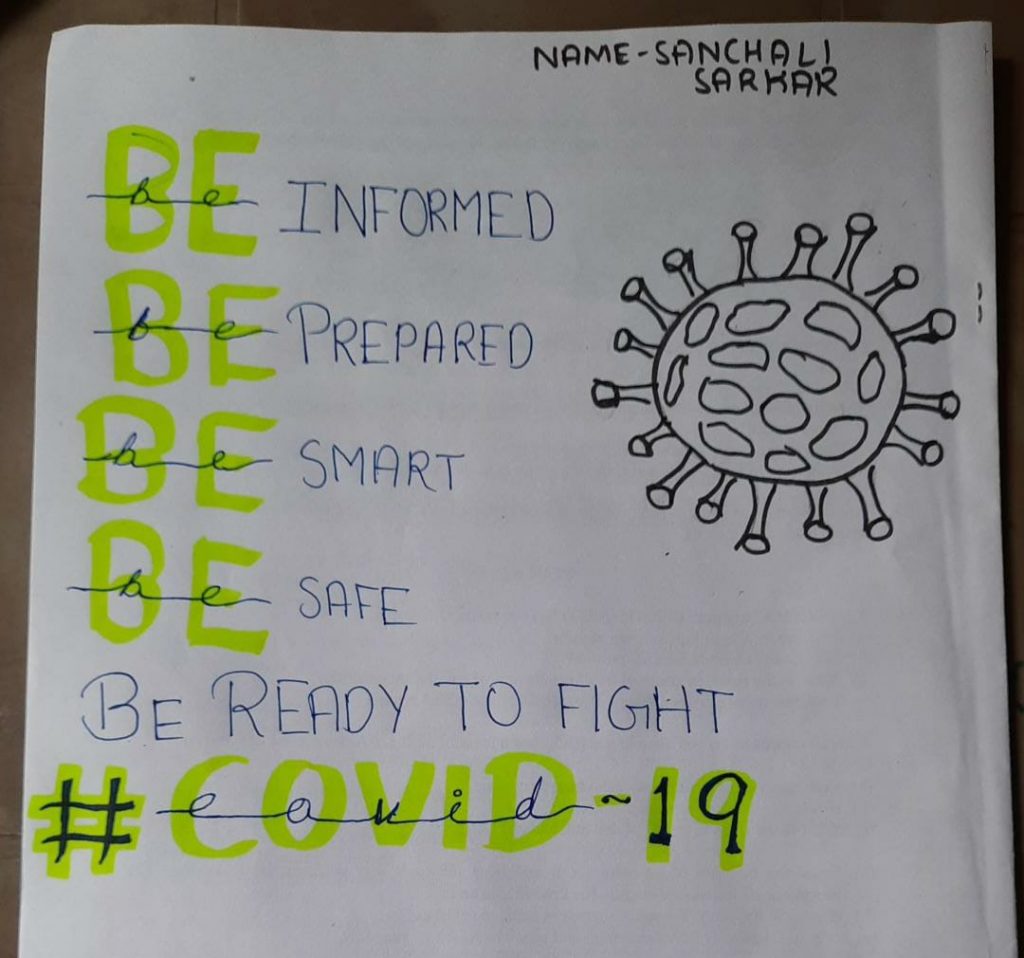 NAME-SANCHALI
SARKAR
BE be INFORMED
BE be PREPARED
BE be SMART
BE be SAFE
BE READY TO FIGHT
#COVID covid~19